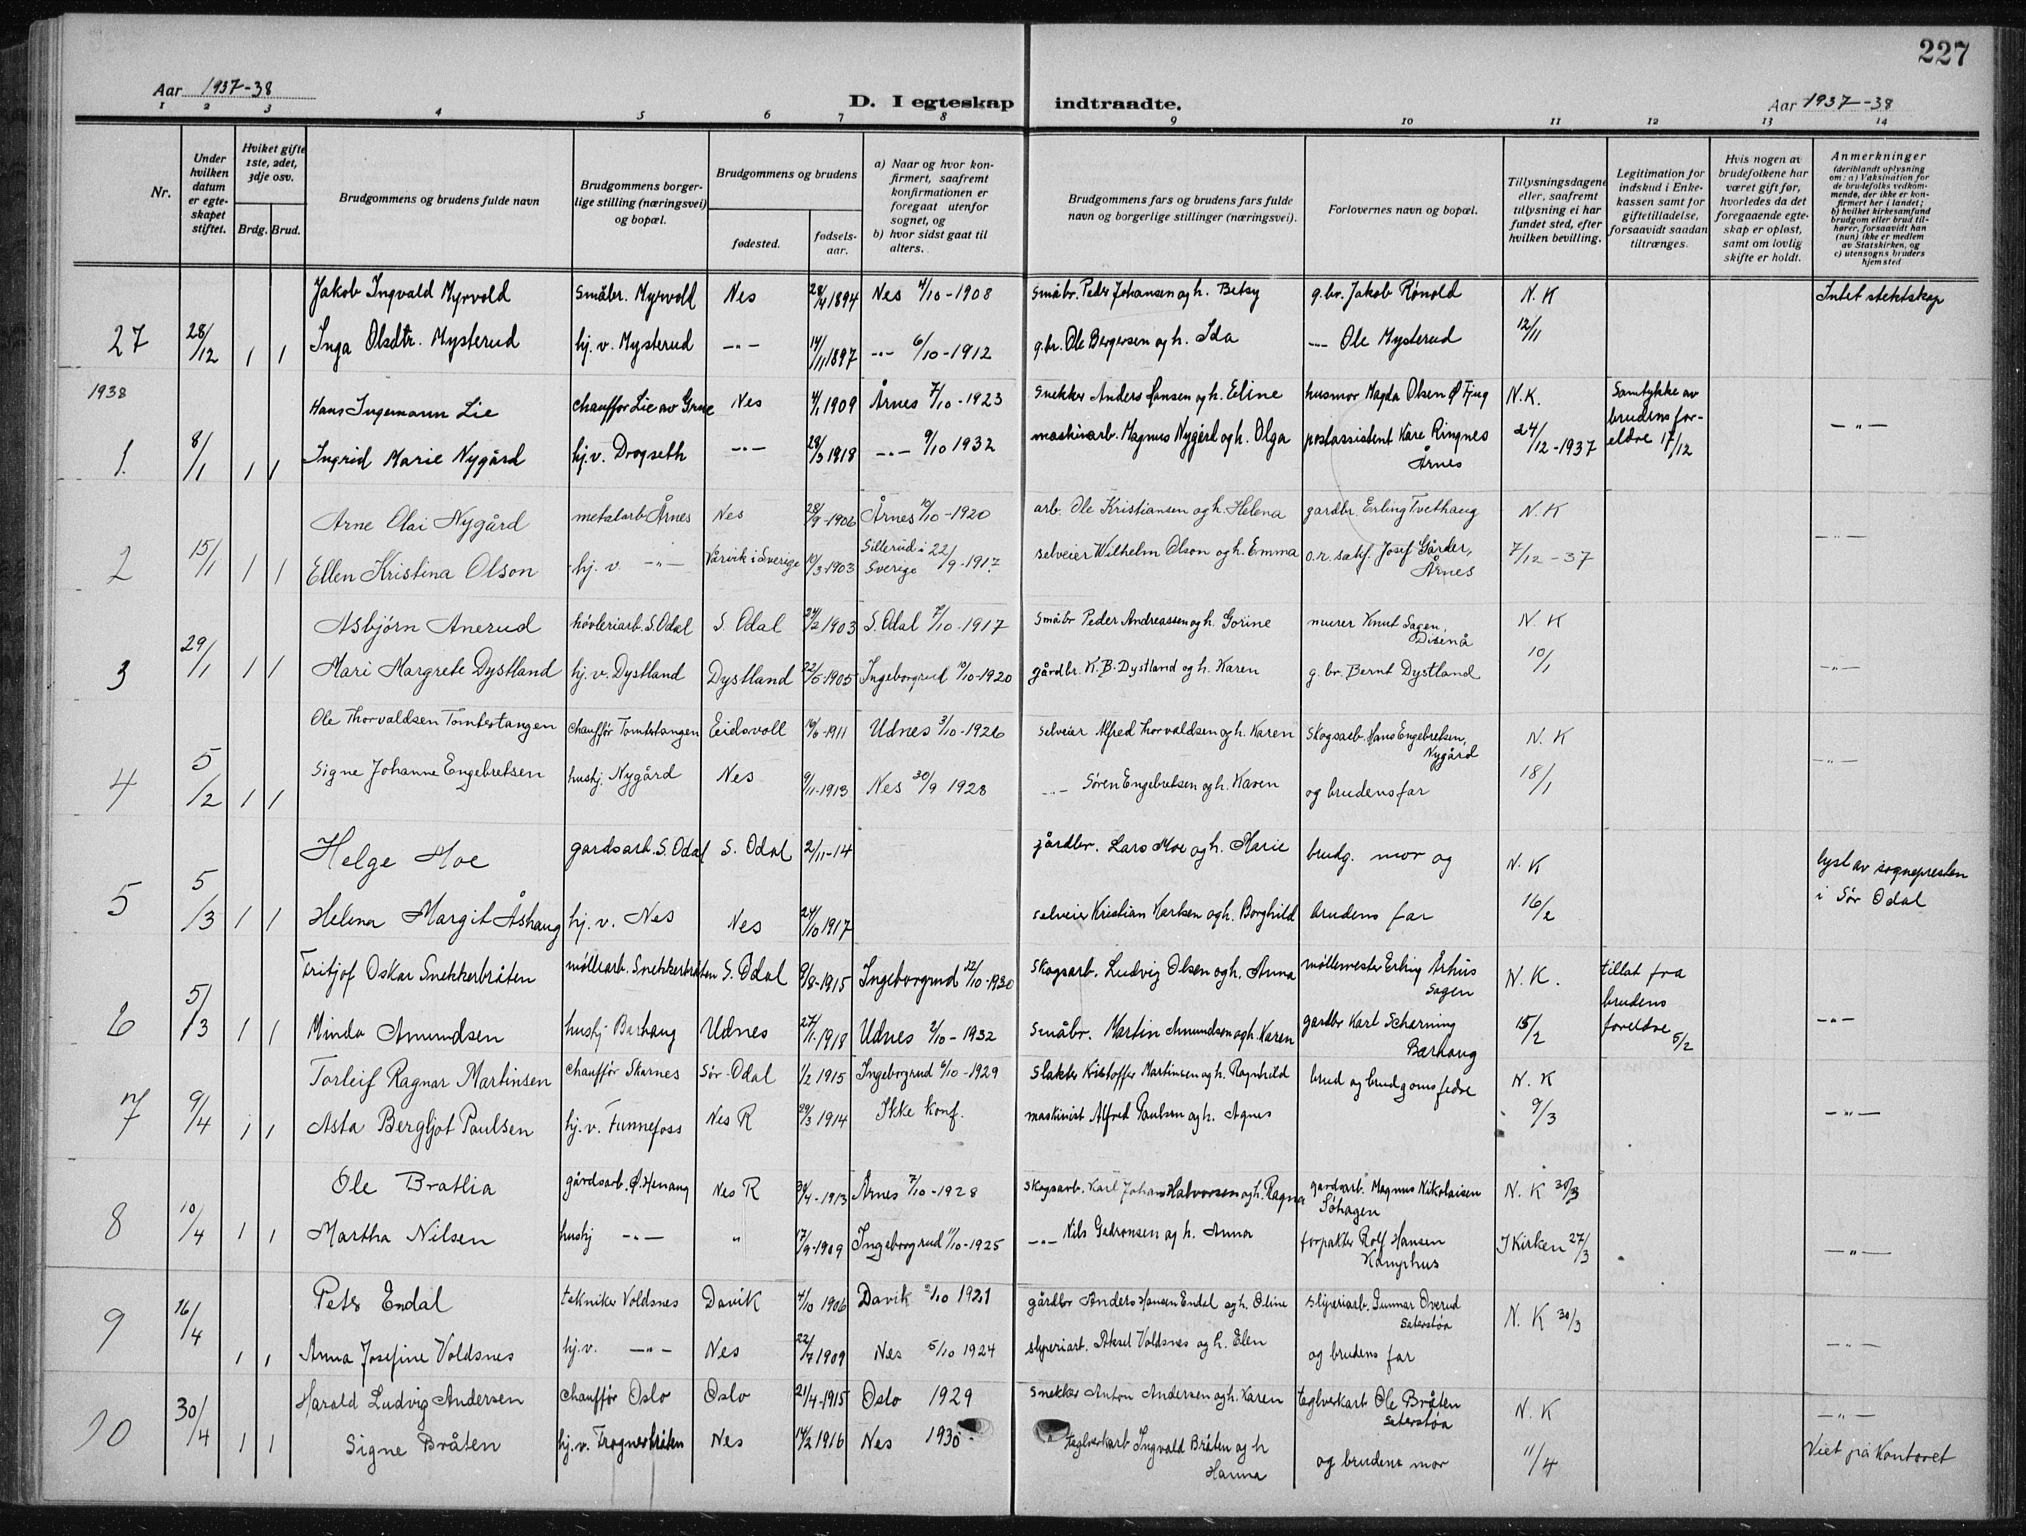 227
Aar 1937-38
D. I egteskap indtraadte.
Aar 1937-38
1 2 3 4 5 6 7 8 9 10 11 12 13 14
Nr.
Under hvilken datum er egteskapet stiftet.
Hviket gifte 1ste, 2det, 3dje osv.
Brdg. Brud.
Brudgommens og brudens fulde navn
Brudgommens borgerlige stilling (næringsvei) og bopæl.
Brudgommens og brudens
fødested.
fødselsaar.
a) Naar og hvor konfirmert, saafremt konfirmationen er foregaat utenfor sognet, og
b) hvor sidst gaat til alters.
Brudgommens fars og brudens fars fulde navn og borgerlige stillinger (næringsvei).
Forlovernes navn og bopæl.
Tillysningsdagene eller, saafremt tillysning ei har fundet sted, efter hvilken bevilling.
Legitimation for indskud i Enkekassen samt for giftetilladelse, forsaavidt saadan tiltrænges.
Hvis nogen av brudefolkene har været gift før, hvorledes da det foregaaende egteskap er opløst, samt om lovlig skifte er holdt.
Anmerkninger (deriblandt oplysning om: a) Vaksination for de brudefolks vedkommende, der ikke er konfirmert her i landet; b) hvilket kirkesamfund brudgom eller brud tilhører, forsaavidt han (hun) ikke er medlem av Statskirken, og c) utensogns bruders hjemsted
Jakob Ingvald Myrvold småbr. Myrvold Nes 28/4 1894 Nes 4/10 - 1908 Småbr. Peder Johansen og h. Betsy g.br. Jakob Rønold N. K Intet slektskap
27 28/12 1 1 Inga Olsdtr. Mysterud hj. v. Mysterud -"- 14/11 1897 -"- 6/10 - 1912 g.br. Ole Bergersen og h. Ida -"- Ole Mysterud 12/11
1938
Hans Ingemann Lie chauffør Lie av Grue Nes 4/1 1909 Årnes 7/10 - 1923 Snekker Anders Hansen og h. Eline husmor Magda Olsen Ø Fjug N. K. Samtykke av brudens foreldre 17/12
1. 8/1 1 1 Ingrid Marie Nygård hj. v. Drogseth -"- 28/3 1918 -"- 9/10 1932 maskinarb. Magnus Nygård og h. Olga postassistent Kåre Ringnes Årnes 24/12 - 1937 -"-
Arne Olai Nygård metalarb. Årnes Nes 28/9 - 1906 Årnes 10/10 - 1920 arb. Ole Kristiansen og h. Helena gardbr. Erling Tvethaug N. K
2 15/1 1 1 Ellen Kristina Olson hj. v. -"- Vårvik i Sverige 10/3 - 1903 Sillerud i Sverige 22/9 - 1917. selveier Wilhelm Olson og h. Emma o.r. sakf. Josef Gårder, Årnes 7/12 - 37 -"-
Asbjørn Anerud høvleriarb. S. Odal S. Odal 24/2 1903 S. Odal 7/10 - 1917 Småbr Peder Andreassen og h. Gorine murer Knut Sagen, Disenå N. K
3 29/1 1 1 Mari Margrete Dystland hj. v. Dystland Dystland 22/5 - 1905 Ingeborgrud 10/10 - 1920 gårdbr. K. B. Dystland og h. Karen g. br. Bernt Dystland 10/1 -"-
Ole Thorvaldsen Tomtertangen chauffør Tomtertangen Eidsvoll 16/6 - 1911 Udnes 3/10 - 1926 selveier Alfred Thorvaldsen og h. Karen Skogsarb. Hans Engebretsen, Nygård N. K
4 5/2 1 1 Signe Johanne Engebretsen hushj. Nygård Nes 9/11 - 1913 Nes 30/9 1928 -"- Søren Engebretsen og h. Karen og brudens far 18/1 -"-
Helge Moe gardsarb. S. Odal S. Odal 2/11 - 14 gårdbr. Lars Moe og h. Marie brudg. mor og N. K lyst av sognepresten i Sør Odal
5 5/3 1 1 Helena Margit Åshaug hj. v. Nes Nes 24/10 1917 selveier Kristian Karlsen og h. Borghild brudens far 16/2
Fritjof Oskar Snekkerbråten møllearb. Snekkerbråten S. Odal 9/8 - 1915 Ingeborgrud 12/10 - 1930 Skogsarb. Ludvig Olsen og h. Anna møllemester Erling Århus Sagen N. K. tillat fra brudens foreldre 5/2
6 5/3 1 1 Minda Amundsen hushj Barhaug Udnes 27/1 - 1918 Udnes 2/10 - 1932 Småbr. Martin Amundsen og h. Karen gardbr Karl Scherning Barhaug 15/2 -"-
Torleif Ragnar Martinsen chauffør Skarnes Sør-Odal 1/2 1915 Ingeborgrud 6/10 - 1929 Slakter Kristoffer Martinsen og h. Ragnhild brud og brudgoms fedre N. K
7 9/4 1 1 Asta Bergljot Paulsen hj. v. Funnefoss Nes R 29/3 1914 Ikke konf. maskinist Alfred Paulsen og h. Agnes 9/3 -"-
Ole Bratlia gårdsarb. Ø. Henang Nes R 30/4 - 1913 Årnes 7/10 - 1928 Skogsarb. Karl Johan Halvorsen og h. Ragna gardsarb. Magnus Nikolaisen Søhagen N. K 30/3
8 10/4 1 1 Martha Nilsen hushj -"- " 17/9 - 1909 Ingeborgrud 11/10 - 1925 -"- Nils Gudronsen og h. Anna forpakter Rolf Hansen Kamphus I Kirken 27/3 -"-
Peter Endal tekniker Voldsnes Davik 4/10 1906 Davik 2/10 1921 gårdbr Anders Hansen Endal og h. Oline sliperiarb. Gunnar Overud Seterstøa N. K 30/3
9 16/4 1 1 Anna Josefine Voldsnes hj. v. -"- Nes 22/7 1909 Nes 5/10 1924 sliperiarb. Aksel Voldsnes og h. Elen og brudens far -"-
Harald Ludvig Andersen chauffør Oslo Oslo 21/4 - 1915 Oslo 1929 Snekker Anton Andersen og h. Karen teglverkarb Ole Bråten Seterstøa N. K -"-
10 30/4 1 1 Signe Bråten hj. v. Trognerbråten Nes 14/2 1916 Nes 1930 - teglverkarb Ingvald Bråten og h Hanna og brudens mor 11/4 Viet på kontoret